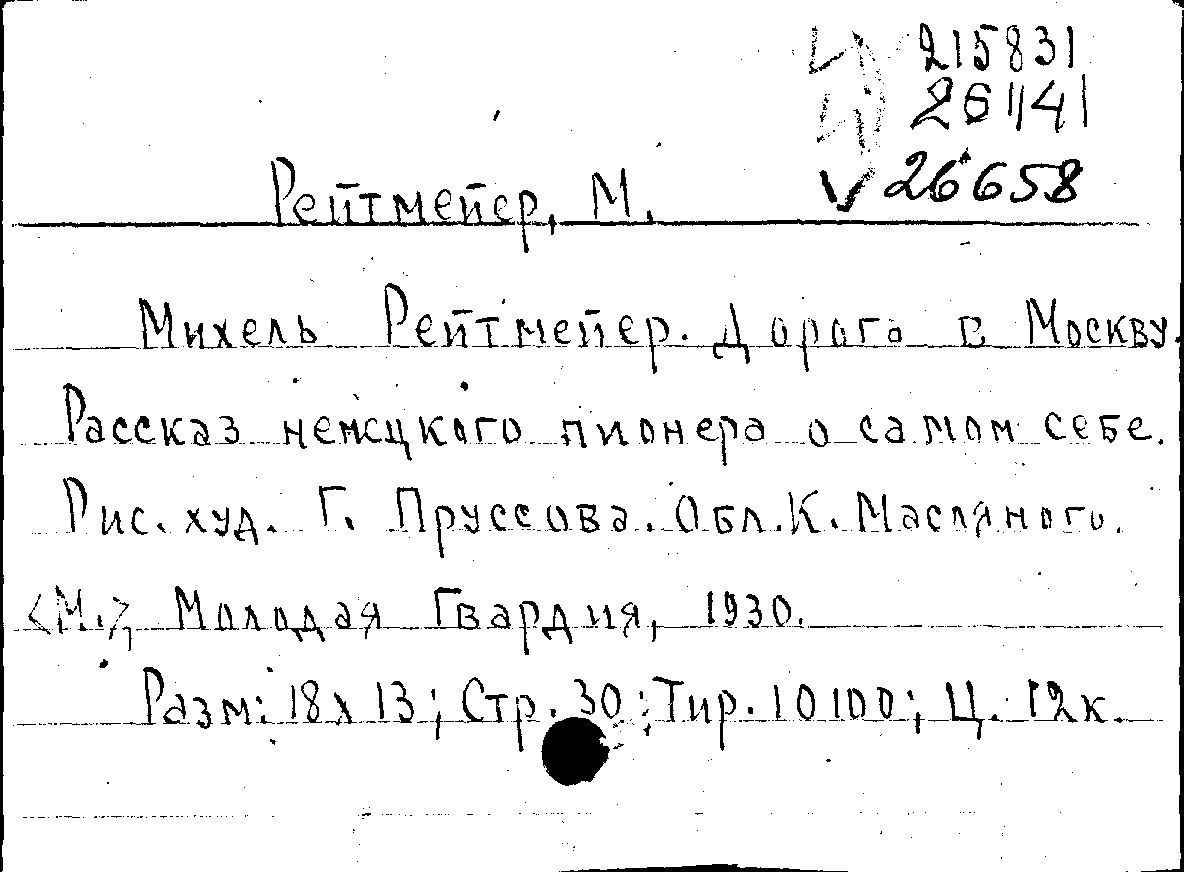 215831
261141
26658
Рейтмейер, М.
Михель Рейтмейер. Дорога в Москву.
Рассказ немецкого пионера о самом себе.
Рис. худ. Г. Пруссова. Обл. К. Масляного.
<М.>, Молодая Гвардия, 1930.
Разм: 18х13; Стр. 30; Тир. 10100; Ц. 12к.